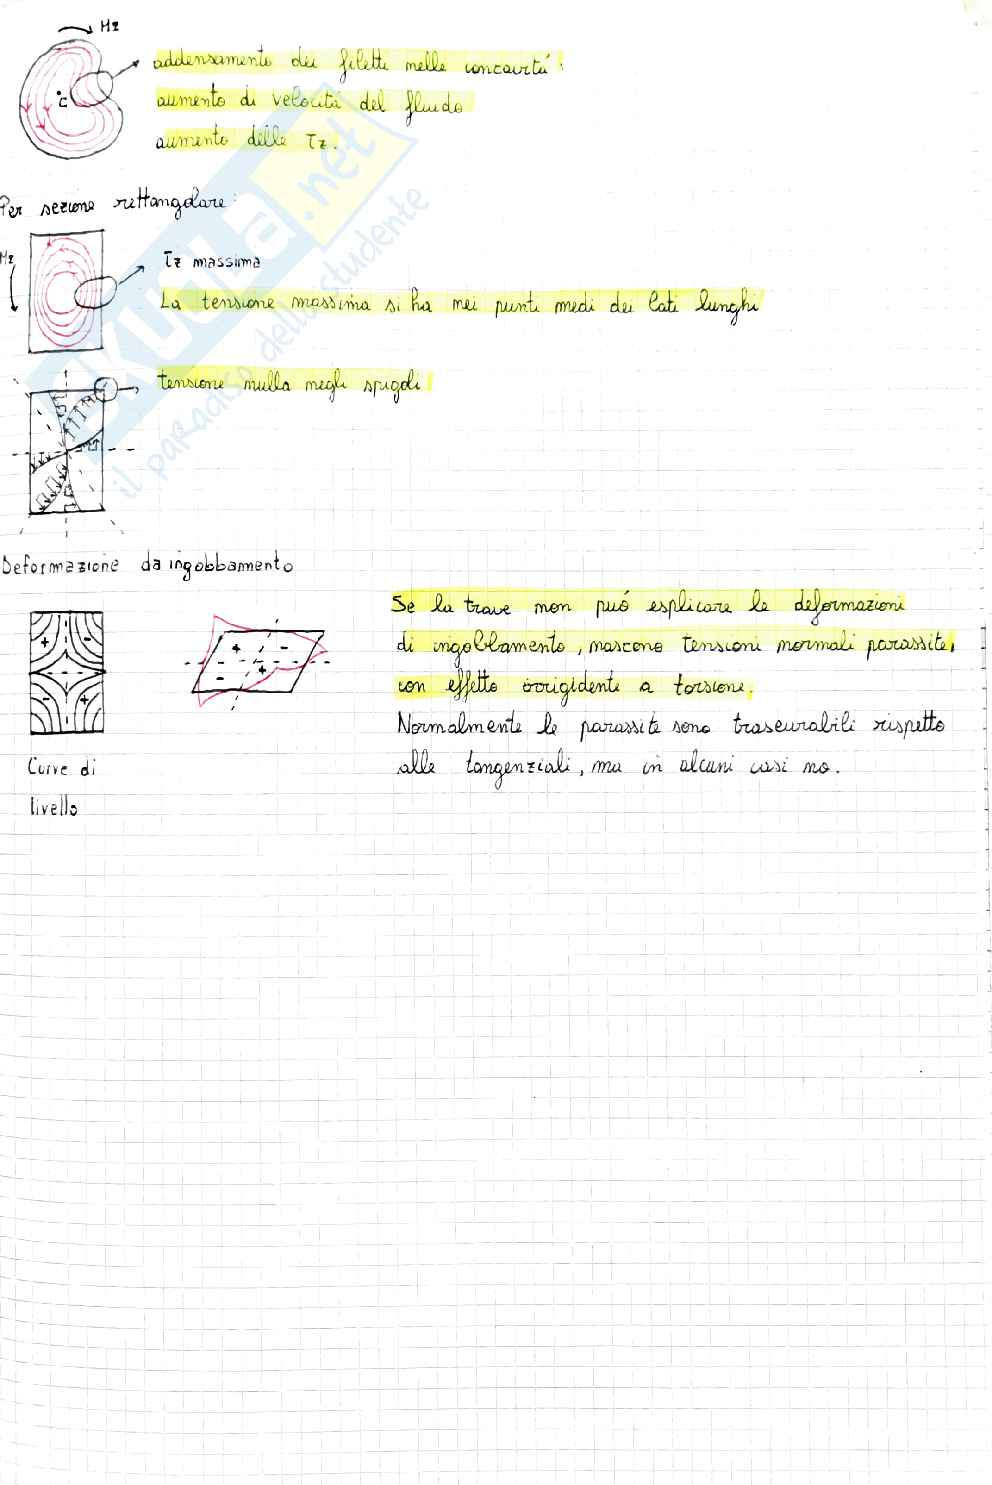 Mz
addensamento dei filetti nelle concavità:
aumento di velocità del fluido
C
aumento delle τz.
Per sezione rettangolare:
Mz
τz massima
La tensione massima si ha nei punti medi dei lati lunghi
tensione nulla negli spigoli
Deformazione da ingobbamento
Se la trave non può esplicare le deformazioni
di ingobbamento, nascono tensioni normali parassite,
con effetto irrigidente a torsione.
Normalmente le parassite sono trascurabili rispetto
alle tangenziali, ma in alcuni casi no.
+ -
- +
+ -
- +
Curve di
livello
SKUOLA.net
il paradiso dello studente